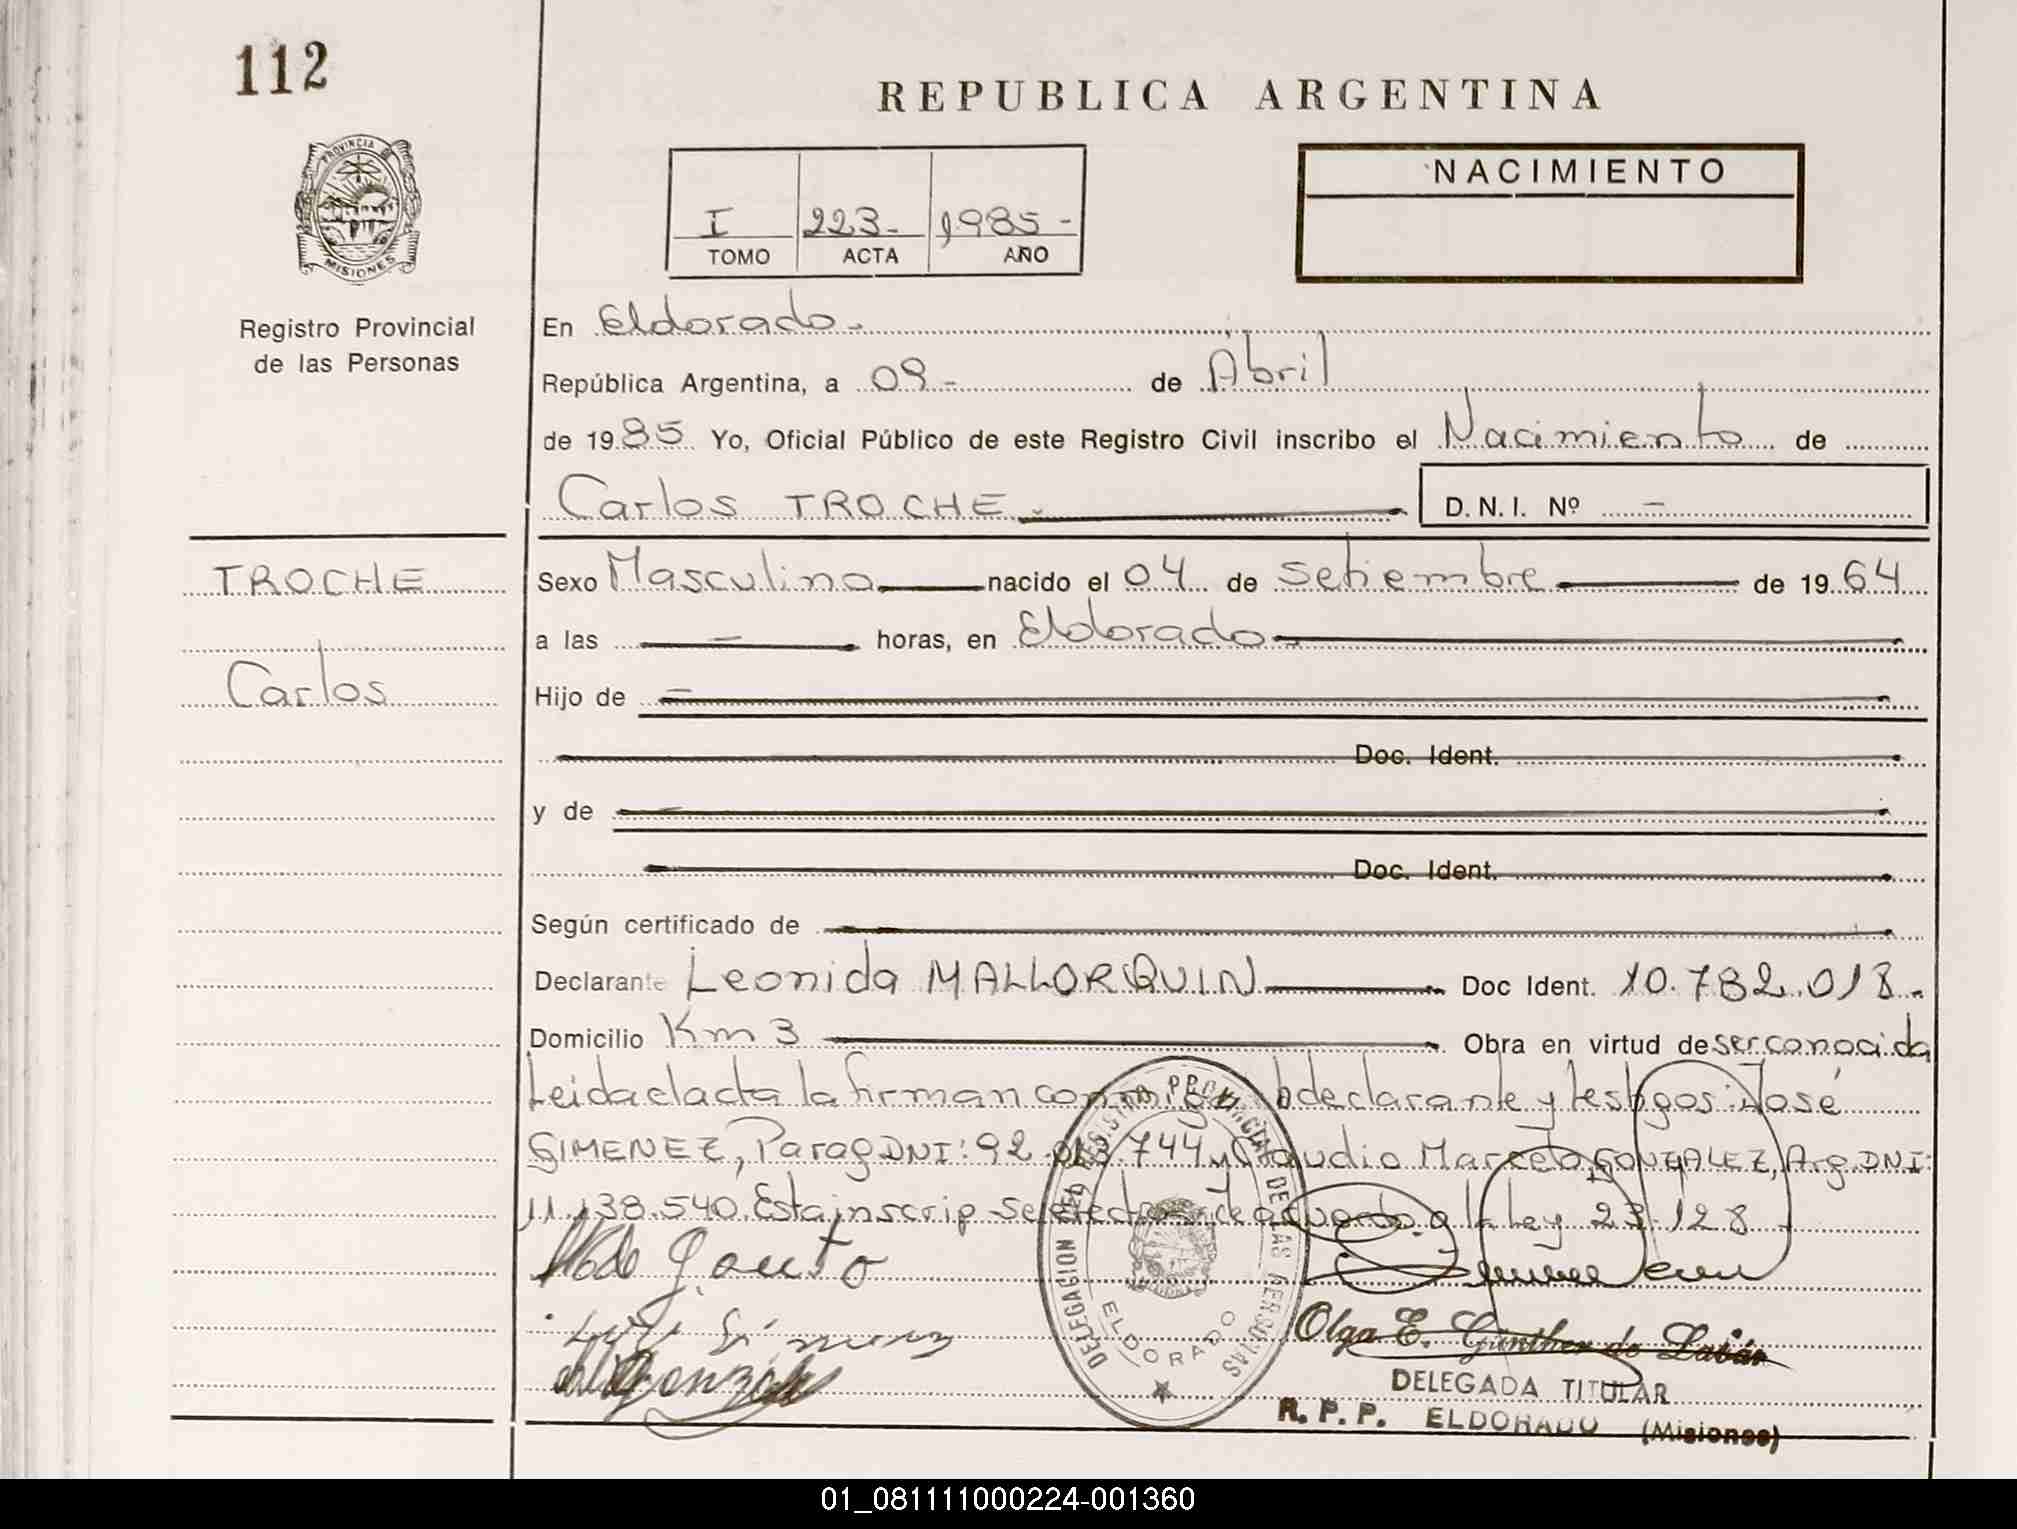 112
REPUBLICA ARGENTINA
PROVINCIA
MISIONES
NACIMIENTO
I 223- 1985-
TOMO ACTA AÑO
Registro Provincial
de las Personas
En Eldorado.
República Argentina, a 09- de Abril
de 1985 Yo, Oficial Público de este Registro Civil inscribo el Nacimiento de
Carlos TROCHE. D.N.I. Nº -
TROCHE
Carlos
Sexo Masculino nacido el 04 de Setiembre de 1964
a las - horas, en Eldorado.
Hijo de -
Doc. Ident.
y de -
Doc. Ident.
Según certificado de
Declarante Leonida MALLORQUIN Doc Ident. 10.782.018.
Domicilio Km 3 Obra en virtud de ser conocida
Leida el acta la firman conmigo declarante y testigos: José
GIMENEZ, Parag DNI: 92. .744 y Claudio Marcelo GONZALEZ, Arg. DNI:
11.138.540. Esta inscrip. se efectua de acuerdo a la Ley 23.128
DELEGACION DEL REGISTRO PROVINCIAL DE LAS PERSONAS
ELDORADO
Olga E. Günther de
DELEGADA TITULAR
R. P. P. ELDORADO (Misiones)
01_081111000224-001360